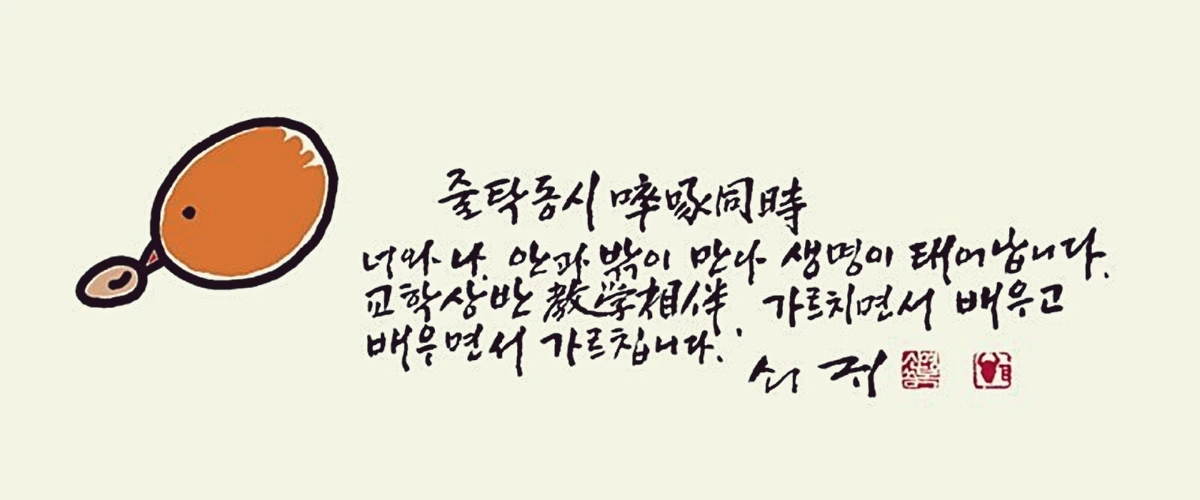 줄탁동시 啐啄同時
너와 나, 안과 밖이 만나 생명이 태어납니다.
교학상반 敎學相伴, 가르치면서 배우고
배우면서 가르칩니다.
쇠귀